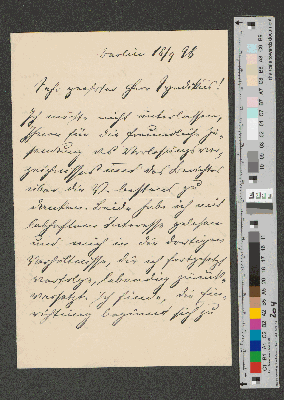 Berlin 16/9 96
Sehr geehrter Herr Syndikus!
Ich möchte nicht unterlassen,
Ihnen für die freundliche Zu-
sendung des Vorlesungsver-
zeichnisses und des Berichtes
über die V. zu
danken. Beide habe ich mit
lebhaftem Interesse gelesen
und mich in die dortigen
Verhältnisse, die ich fortgesetzt
verfolge, lebendig zurück-
versetzt. Ich finde, die Ein-
richtung beginnt sich zu